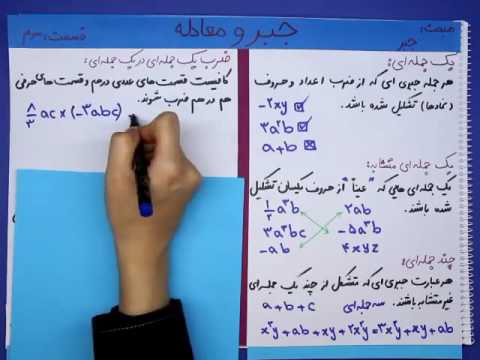 مبحث: جبر
جبر و معامله
قسمت: سوم
یک جمله‌ای:
هر جمله جبری ای که از ضرب اعداد و حروف
(نمادها) تشکیل شده باشد.
-۲xy ☑
۳a²b ☑
a+b ☒
یک جمله‌ای متشابه:
یک جمله‌ای هایی که "عیناً" از حروف یکسان تشکیل
شده باشند.
۱/۲ a²b ۲ab
۳a²bc -۵a²b
-ab ۴xyz
چند جمله‌ای:
هر عبارت جبری ای که متشکل از چند یک جمله‌ای
غیر متشابه باشند. a+b+c سه جمله‌ای
x²y+ab+xy+۲x²y=۳x²y+xy+ab
ضرب یک جمله‌ای در یک جمله‌ای:
کافیست قسمت های عددی در هم و قسمت های حرفی
هم در هم ضرب شوند.
۸/۳ ac×(-۳abc)